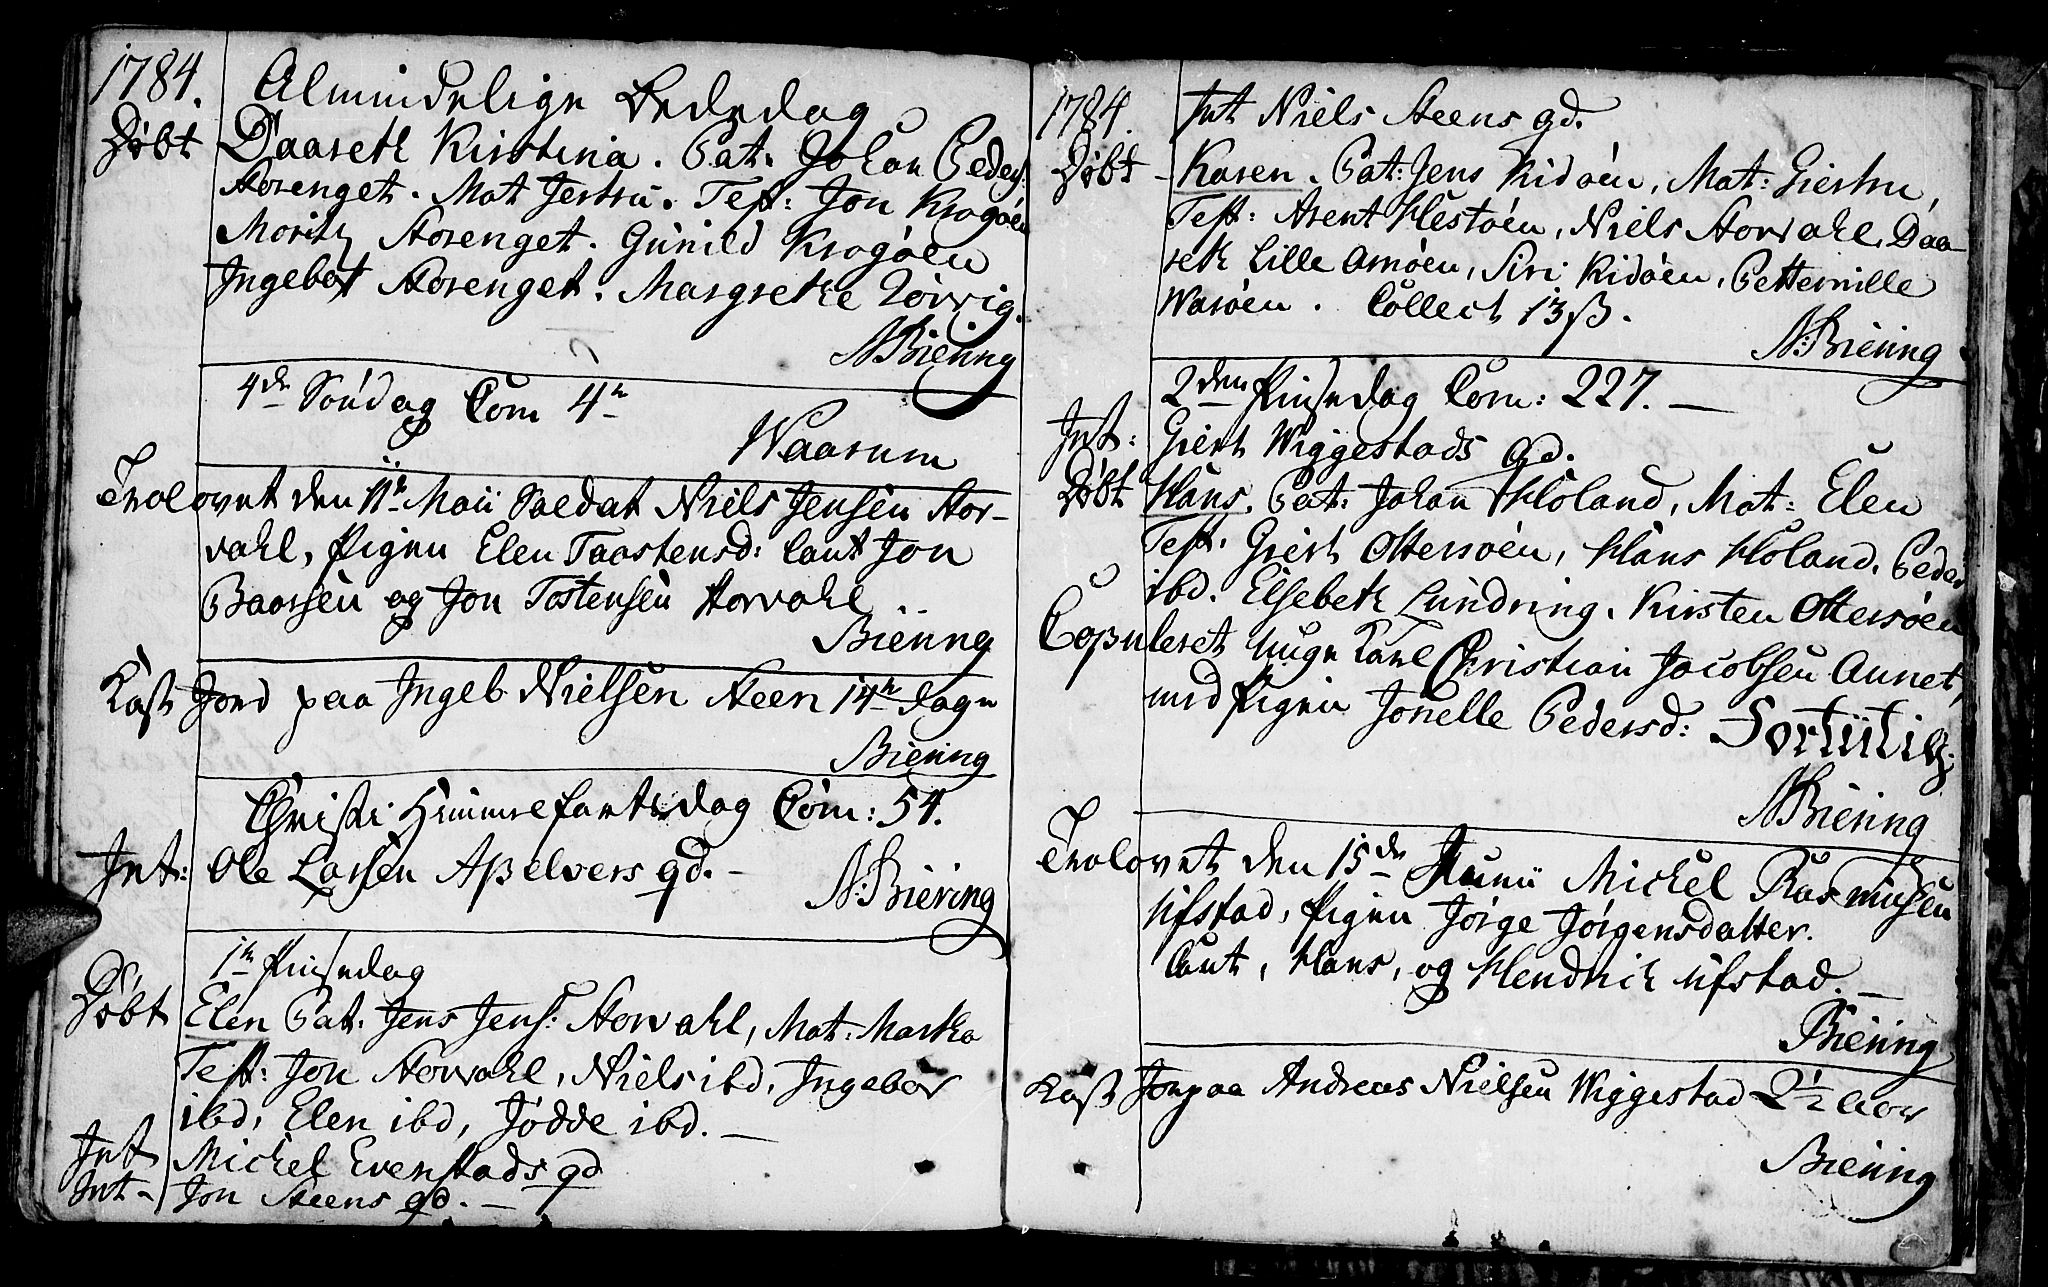 1784. Almindelige Bededag
Döbt Daareth Kirstina. Pat: Johan Peders:
Storenget. Mat Jertru. Test: Jon Krogöen
Moritz Storenget. Gunild Krogöen
Ingebor Storenget. Margrethe Rörvig.
N Biering
4de Söndag Com 4r
Waarum
Trolovet den 11te Maii Soldat Niels Jensen Hor-
vahl, Pigen Elen Taastensd: Caut Jon
Baarsen og Jon Tostensen Horvahl ..
Biering
Kast Jord paa Ingeb Nielsen Steen 14n Dage
Biering
Christi Himmelfartsdag Com: 54.
Int: Ole Larsen Apelvers qd. -
N: Biering
1te Pinsedag
Döbt Elen Pat: Jens Jens: Horvahl, Mat: Martha
Test: Jon Horvahl, Niels ibd, Ingebor
ibd, Elen ibd, Jödde ibd. —
Int Michel Evenstads qd
Int - Jon Steens qd. —
1784. Int Niels Steens qd.
Döbt - Karen. Pat: Jens Kidöen, Mat: Giertru,
Test: Arent Hestöen, Niels Horvahl, Daa-
reth Lille Amöen, Siri Kidöen, Petternille
Waröen. Collect 13 ß.
N: Biering
2den Pinsedag Com: 227. —
Int: Giert Wiggestads qd.
Döbt Hans. Pat: Johan Höland, Mat: Elen
Test: Giert Ottersöen, Hans Höland, Peder
ibd. Elsebeth Lundring. Kirsten Ottersöen
Copuleret Unge Karl Christian Jacobsen Aunet,
med Pigen Jonelle Pedersd:
N Biering
Trolovet den 15de Junii Michel Rasmusen
Ufstad, Pigen Jörge Jörgensdatter.
Caut, Hans, og Hendrik Ufstad. —
Biering
Kast Jor paa Andreas Nielsen Wiggestad 2½ aar
Biering